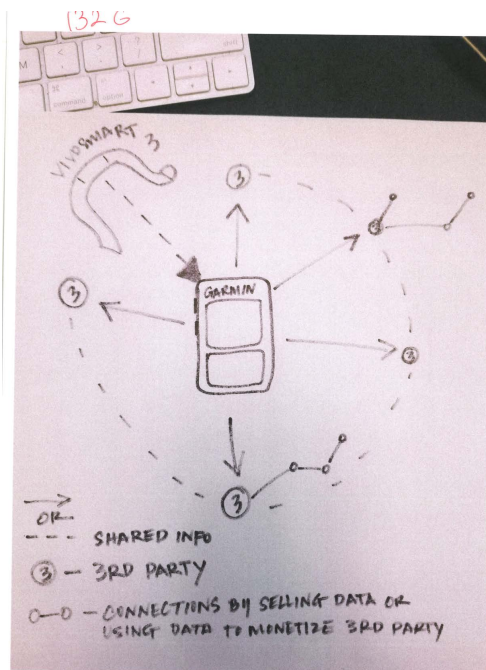 132G
M
command
option
VIVOSMART 3
3
3
3
GARMIN
3
3
OR
SHARED INFO
3 - 3RD PARTY
O-O - CONNECTIONS BY SELLING DATA OR
USING DATA TO MONETIZE 3RD PARTY